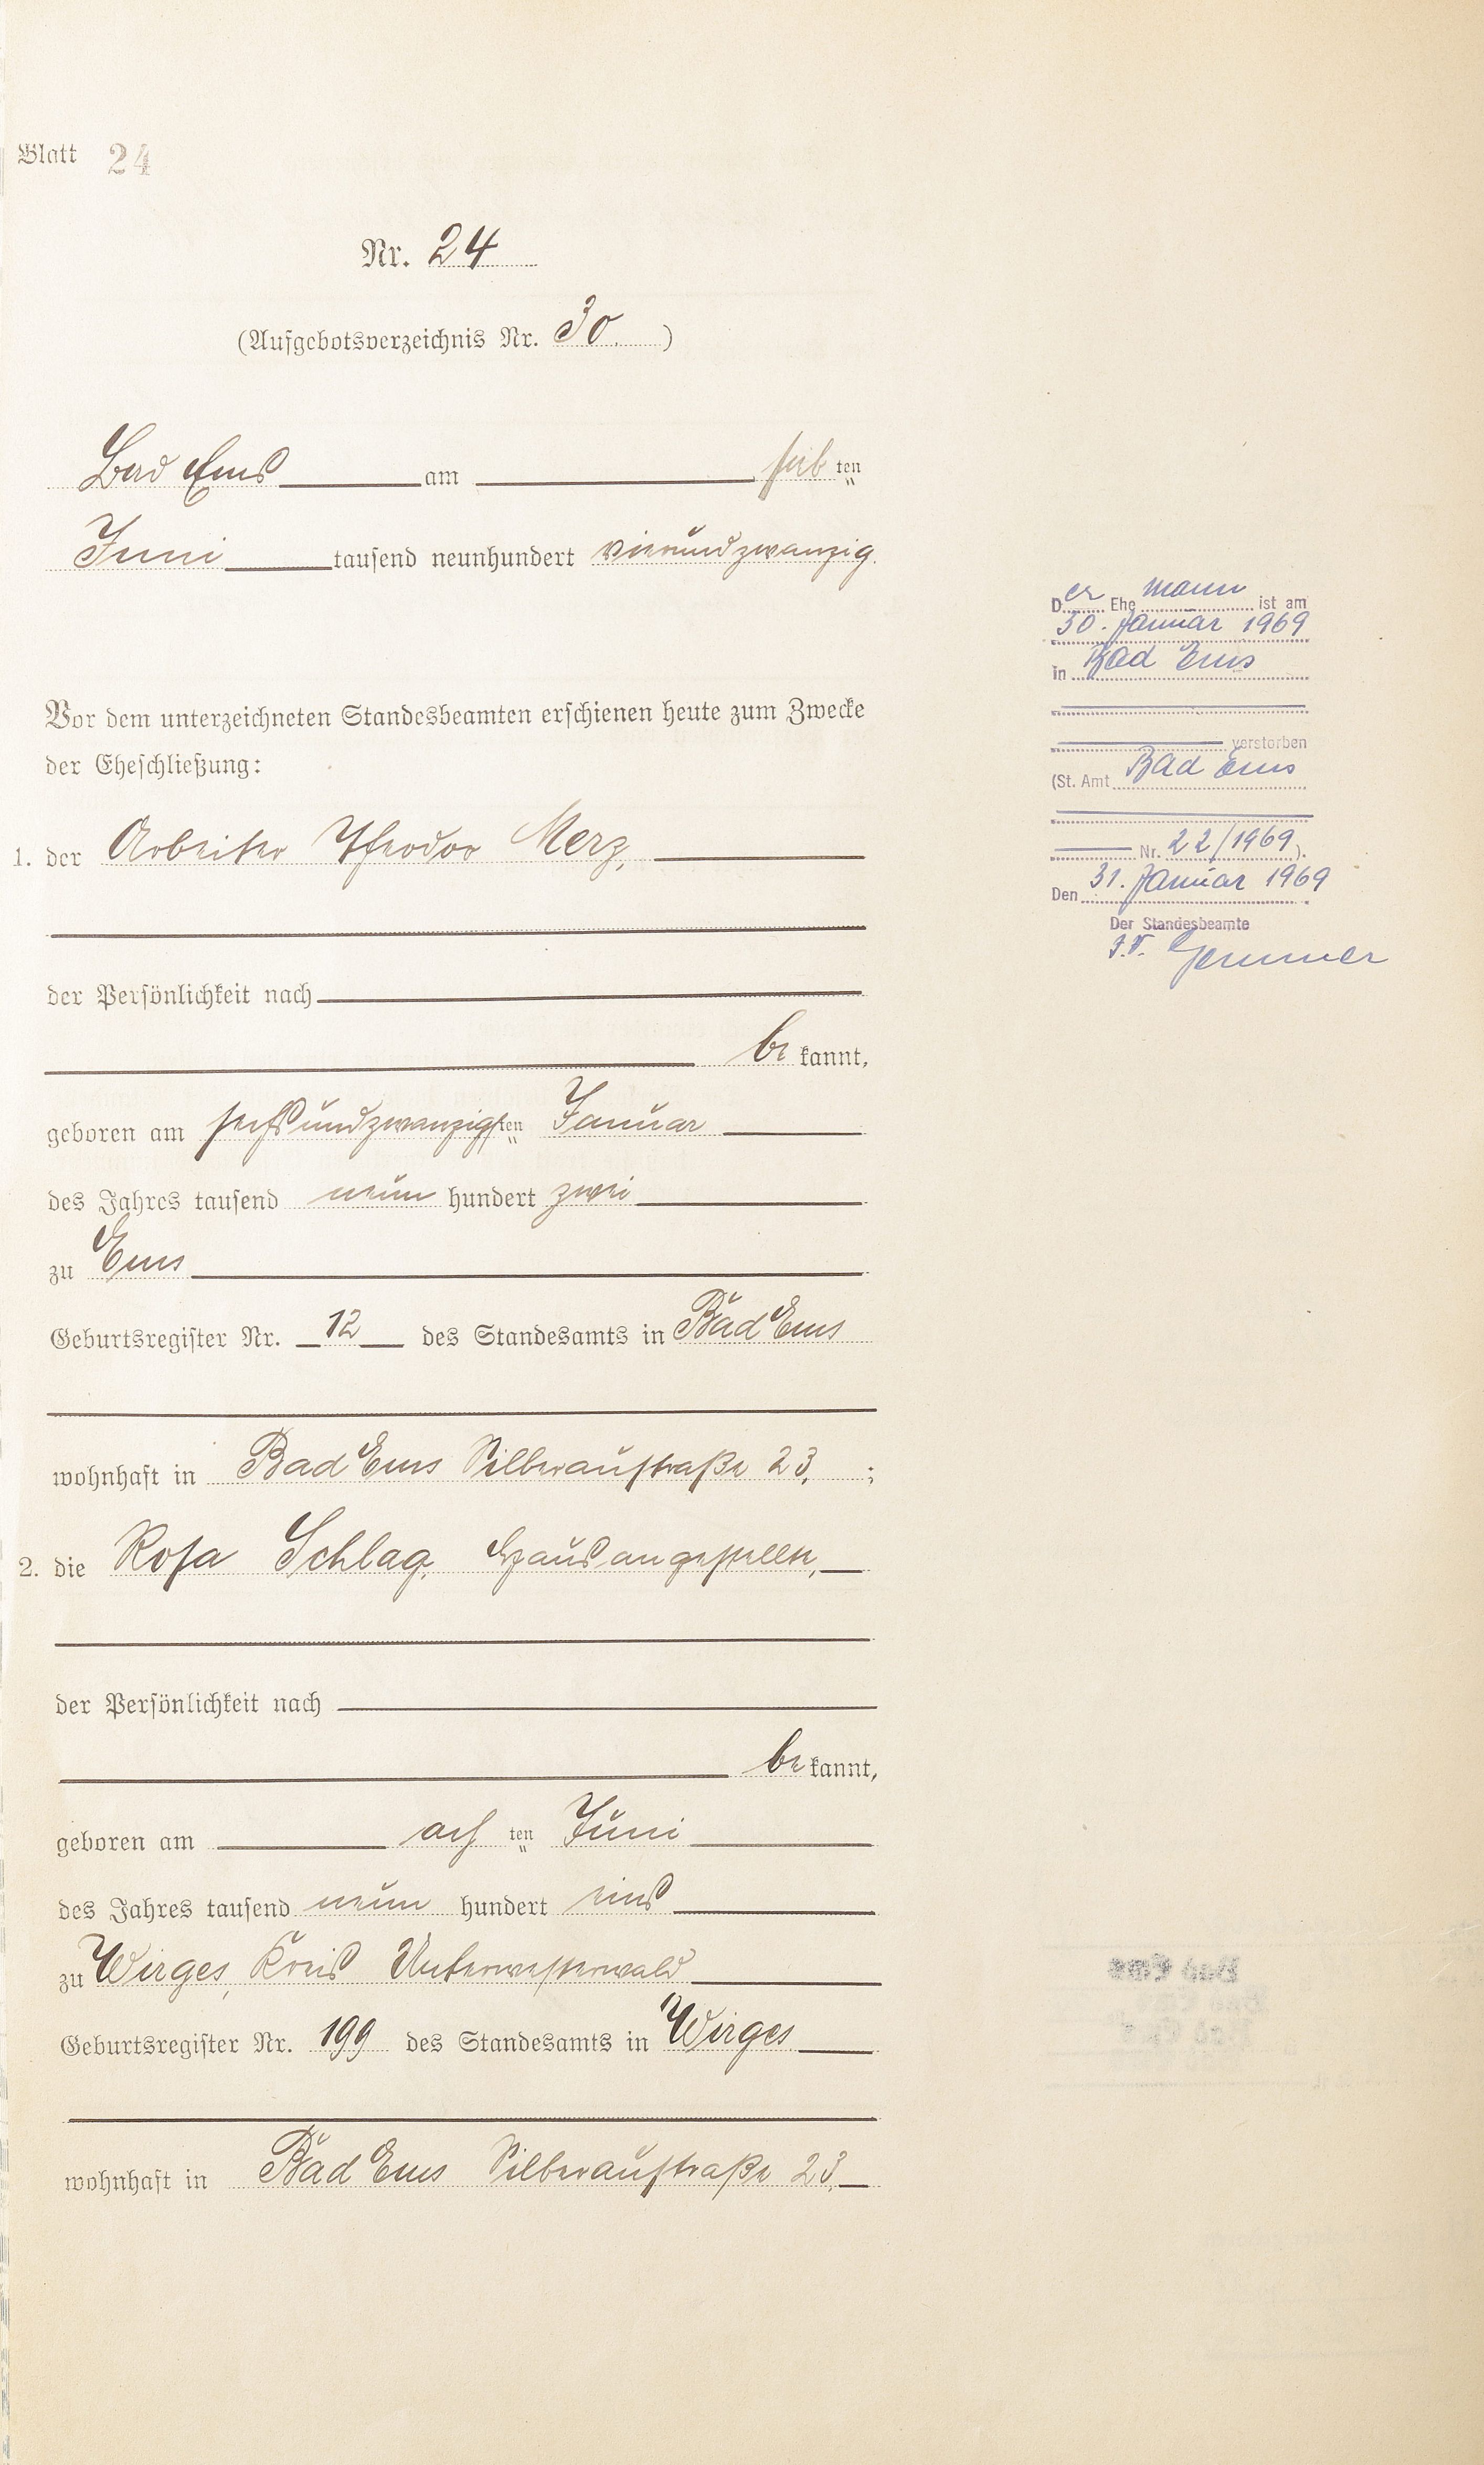 Blatt 24
Nr. 24
(Aufgebotsverzeichnis Nr. 30.)
Bad Ems am sieb ten
Juni tausend neunhundert vierundzwanzig.
Vor dem unterzeichneten Standesbeamten erschienen heute zum Zwecke
der Eheschließung:
1. der Arbeiter Theodor Merz,
der Persönlichkeit nach
be kannt,
geboren am sechsundzwanzigsten Januar
des Jahres tausend neun hundert zwei
zu Ems
Geburtsregister Nr. 12 des Standesamts in Bad Ems
wohnhaft in Bad Ems Silberaustraße 23, ;
2. die Rosa Schlag, Hausangestellte,
der Persönlichkeit nach
be kannt,
geboren am ach ten Juni
des Jahres tausend neun hundert eins
zu Wirges, Kreis Unterwesterwald
Geburtsregister Nr. 199 des Standesamts in Wirges
wohnhaft in Bad Ems Silberaustraße 23,
Der Ehe mann ist am
30. Januar 1969
in Bad Ems
verstorben
(St. Amt Bad Ems
Nr. 22/1969).
Den 31. Januar 1969
Der Standesbeamte
I.V.